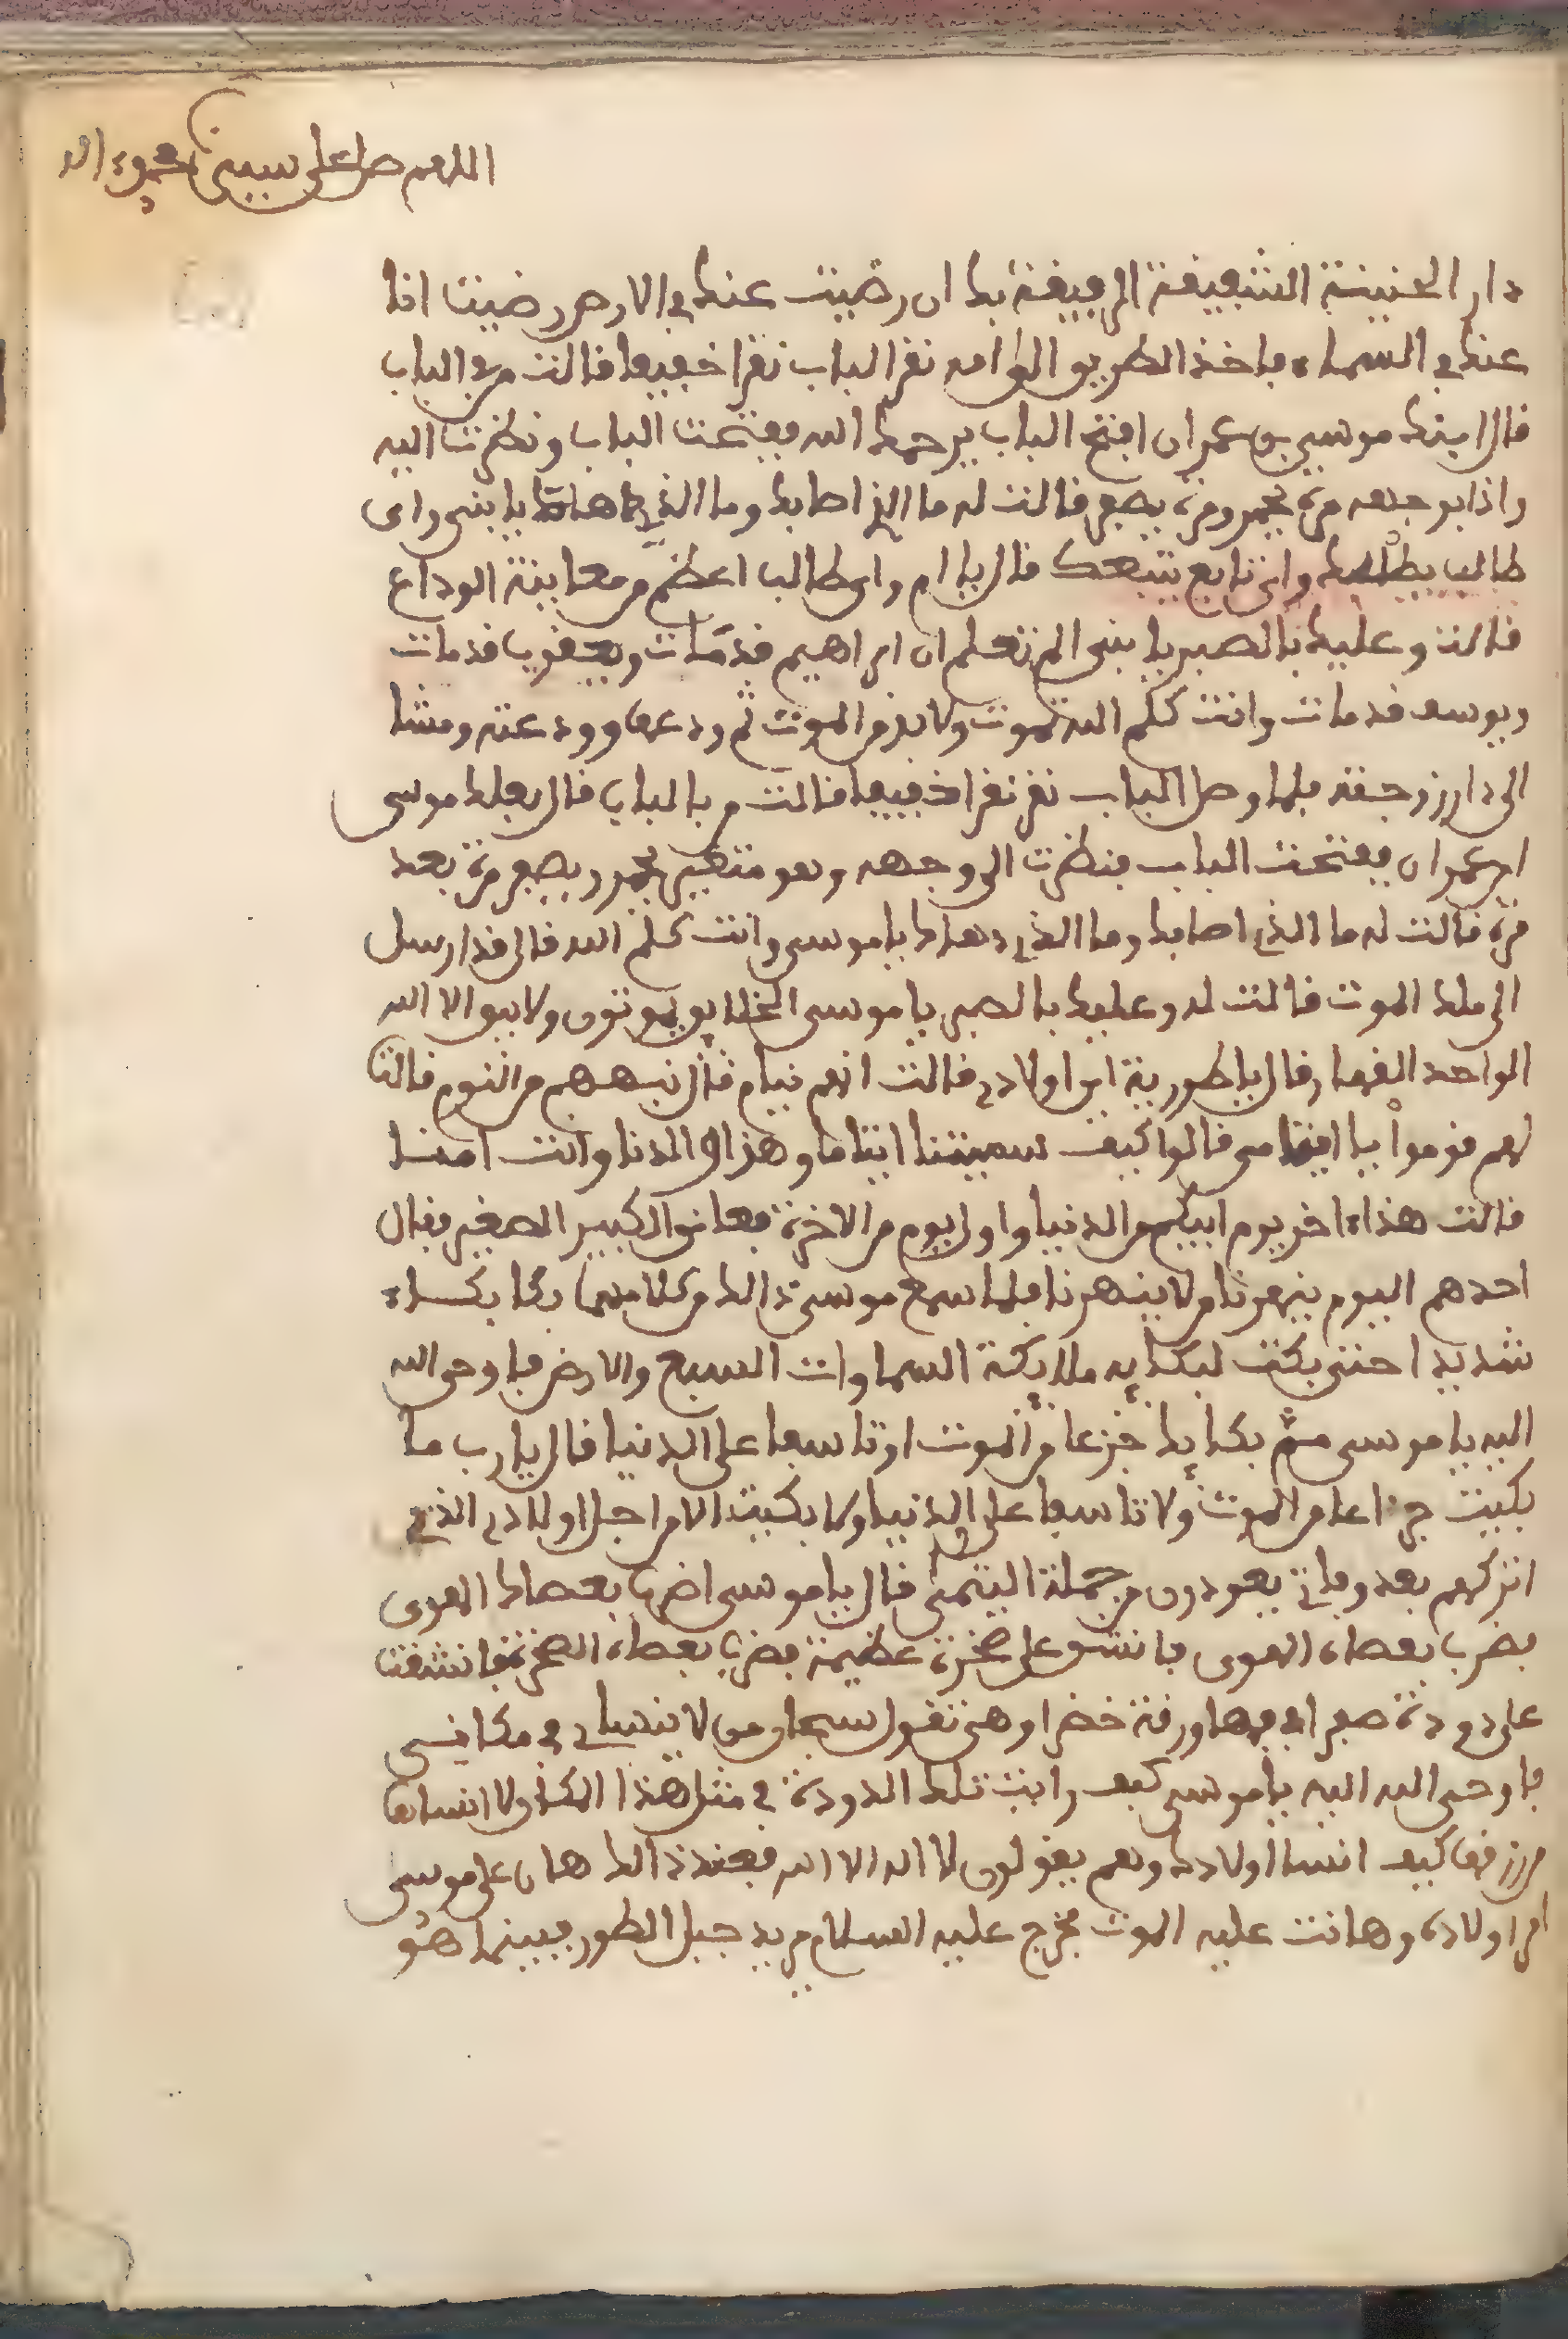 اللهم صل على سيدنا محمد واله
دار الحنينة الشفيفة الرفيفة بك ان رضيت عنك في الارض رضيت انا
عنك في السماء فاخذ الطريق الى امه نقر الباب نقرا خفيفا فالت من في الباب
قال ابنك موسى بن عمران افتح الباب يرحمك الله ففتحت الباب ونظرت اليه
واذا بوجهه مرة يحمر ومرة يصفر فالت له ما الذي اصابك وما الذي دهاك يا بني واي
طالب يطلبك واي تابع يتبعك قال يا ام واي طالب اعظم من معاينة الوداع
فالت وعليك بالصبر يا بني الم تعلم ان ابراهيم قد مات ويعقوب قد مات
ويوسف قد مات وانت كلم الله تموت ولا بد من الموت ثم ودعها وودعته ومشا
الى دار زوجته فلما وصل الباب نقر نقرا خفيفا فالت من بالباب قال بعلك موسى
ابن عمران ففتحت الباب فنظرت الى وجهه وهو متغير يحمر ويصفر مرة بعد
مرة فالت له ما الذي اصابك وما الذي دهاك يا موسى وانت كلم الله قال قد ارسل
الي ملك الموت فالت له وعليك بالصبر يا موسى الخلايق يموتون ولا يبق الا الله
الواحد القهار قال يا طورية اين اولادي فالت انهم نيام قال نبههم من النوم فالت
لهم قوموا يا ايتامى قالوا كيف سميتنا ايتاما وهذا والدنا وانت امنا
فالت هذا اخر يوم ابيكم من الدنيا واول يوم من الاخرة فعانق الكبير الصغير فقال
احدهم اليوم ينهرنا ولا ينهرنا فلما سمع موسى ذالك من كلامهما بكا بكاء
شديدا حتى بكت لبكايه ملايكة السماوات السبع والارض فاوحى الله
اليه يا موسى مم بكايك جزعا من الموت او تاسفا على الدنيا قال يا رب ما
بكيت جزعا من الموت ولا تاسفا على الدنيا ولا بكيت الا من اجل اولادي الذي
اتركهم بعد وفاتي يعودون من جملة اليتمى قال يا موسى اضرب بعصاك الهوى
فضرب بعصاه الهوى فانشق على صخرة عظيمة فضرب بعصاه الصخرة فانشقت
على دودة صفرا في فمها ورقة خضرا وهي تقول سبحان من لا ينساني في مكاني
فاوحى الله اليه يا موسى كيف رايت تلك الدودة في مثل هذا المكان ولا انساها
من رزقها كيف انسا اولادك وهم يقولون لا اله الا الله فعند ذالك هان على موسى
امر اولاده وهانت عليه الموت فخرج عليه السلام يريد جبل الطور فبينما هو